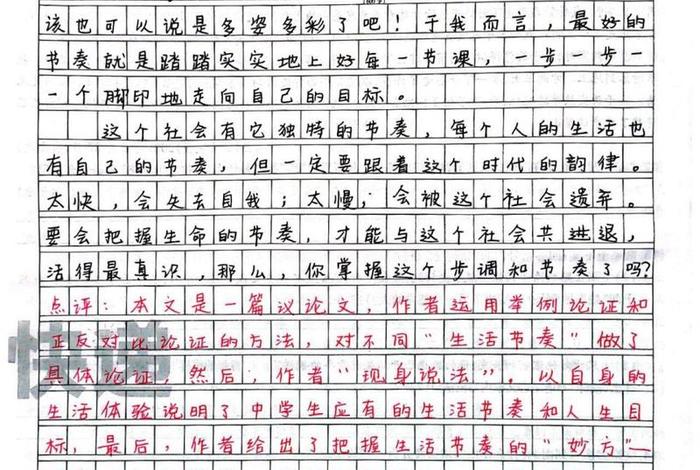 该也可以说是多姿多彩了吧！于我而言，最好的
节奏就是踏踏实实地上好每一节课，一步一步一
一个脚印地走向自己的目标。
这个社会有它独特的节奏，每个人的生活也
有自己的节奏，但一定要跟着这个时代的韵律。
太快，会失去自我；太慢，会被这个社会遗弃。
要会把握生命的节奏，才能与这个社会共进退，
活得最真识，那么，你掌握这个步调和节奏了吗？
点评：本文是一篇议论文，作者运用举例论证和
正反对比论证的方法，对不同“生活节奏”做了
具体论证，然后，作者“现身说法”，以自身的
生活体验说明了中学生应有的生活节奏和人生目
标，最后，作者给出了把握生活节奏的“妙方”—
快递